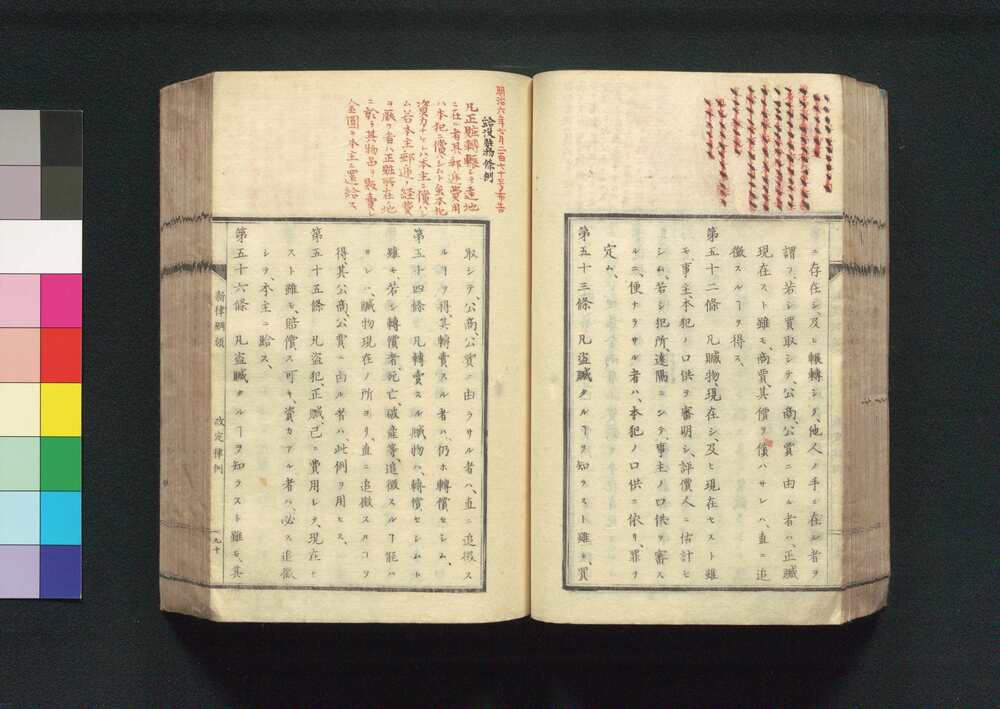 ニ存在シ、及ヒ輾轉シテ、他人ノ手ニ在ル者ヲ
謂フ、若シ買取シテ、公商、公賣ニ由ル者ハ、正贓
現在スト雖モ、商賈、其價ヲ償ハサレハ、直ニ追
徴スルヿヲ得ス、
第五十二條　凡贓物、現在シ、及ヒ現在セスト雖
モ、事主、本犯ノ口供ヲ審明シ、評價人ニ估計セ
シム、若シ犯所遠隔ニシテ、事主ノ口供ヲ審ス
ルニ、便ナラサル者ハ、本犯ノ口供ニ依リ、罪ヲ
定ム、
第五十三條　凡盗贓タルヿヲ知ラスト雖モ、買
明治六年七月二百七十号布告
給没贓物條例
凡正贓輾轉シテ遠地
ニ在ル者其郵送費用
ハ本犯ニ償ハシム
資力ナケレハ本主ニ償ハシ
ム若本主郵運ノ經費
ヲ厭フ者ハ正贓所在地
ニ於テ其物品ヲ販賣シ
金圓ヲ本主ニ還給ス
取シテ、公商、公賣ニ由ラサル者ハ、直ニ追徴ス
ルヿヲ得、其轉賣スル者ハ、仍ホ轉償セシム、
第五十四條　凡轉賣スル贓物ハ、轉償セシムト
雖モ、若シ轉償者、死亡、破産等、追徴スルヿ能ハ
サレハ、贓物現在ノ所ヨリ、直ニ追徴スルヿヲ
得、其公商、公賣ニ由ル者ハ、此例ヲ用ヒス、
第五十五條　凡盗犯、正贓、已ニ費用シテ、現在セ
スト雖モ、賠償ス可キ、資力アル者ハ、必ス追徴
シテ、本主ニ給ス、
第五十六條　凡盗贓タルヿヲ知ラスト雖モ、其
新律綱領　改定律例　九十